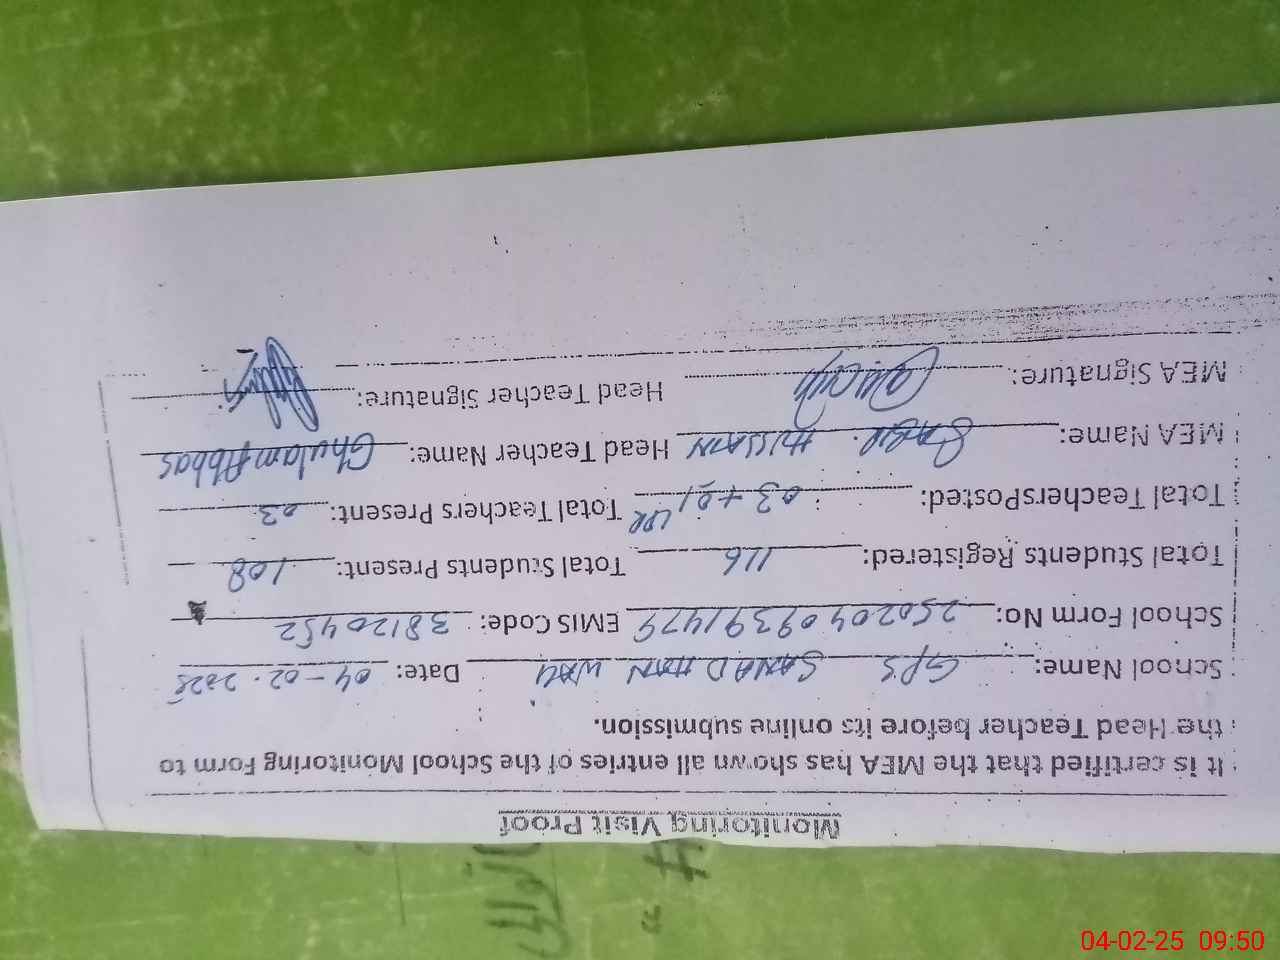 Monitoring Visit Proof
It is certified that the MEA has shown all entries of the School Monitoring Form to
the Head Teacher before its online submission.
School Name: GPS SANAD HAN WALI Date: 04-02-2025
School Form No: 25020409391479 EMIS Code: 38120452
Total Students Registered: 116 Total Students Present: 108
Total TeachersPosted: 03+01 LPR Total Teachers Present: 03
MEA Name: SABIR HUSSAIN Head Teacher Name: Ghulam Abbas
MEA Signature: Head Teacher Signature:
04-02-25 09:50